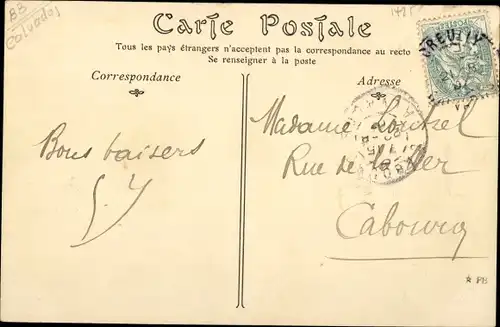 BB
Calvados
Carte Postale
Tous les pays étrangers n'acceptent pas la correspondance au recto
Se renseigner à la poste
Correspondance
Adresse
CREULLY
Madame
Bons baisers
Rue de la Mer
Cabourg